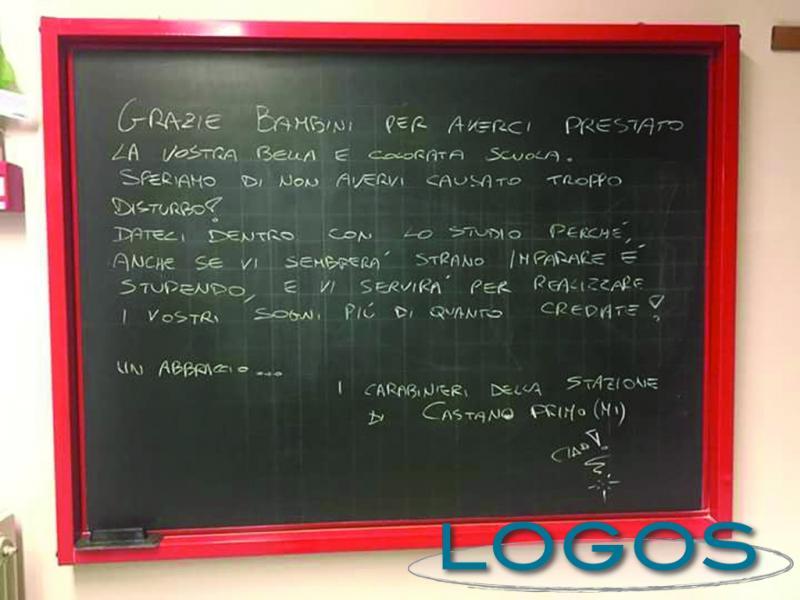 GRAZIE BAMBINI PER AVERCI PRESTATO
LA VOSTRA BELLA E COLORATA SCUOLA.
SPERIAMO DI NON AVERVI CAUSATO TROPPO
DISTURBO!
DATECI DENTRO CON LO STUDIO PERCHÉ,
ANCHE SE VI SEMBRERA' STRANO IMPARARE É
STUPENDO, E VI SERVIRA' PER REALIZZARE
I VOSTRI SOGNI PIÚ DI QUANTO CREDIATE!
UN ABBRACCIO....
I CARABINIERI DELLA STAZIONE
DI CASTANO PRIMO (MI)
CIAO!
LOGOS